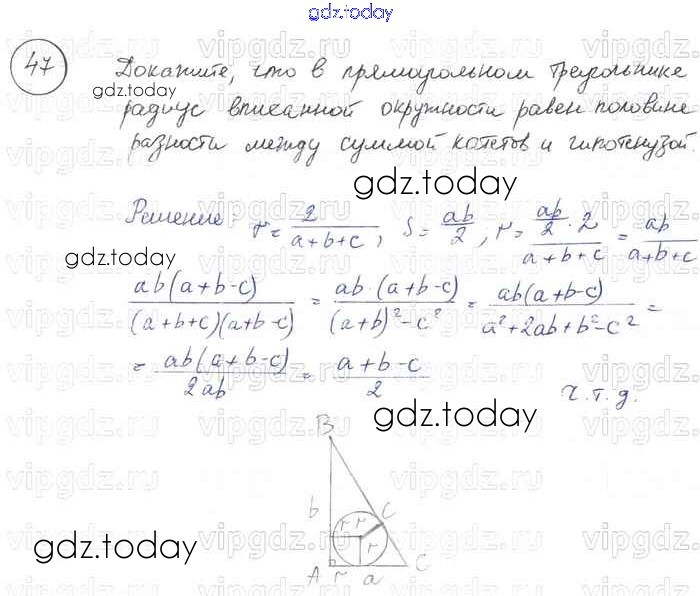 gdz.today
47 Докажите, что в прямоугольном треугольнике
gdz.today
радиус вписанной окружности равен половине
разности между суммой катетов и гипотенузой.
gdz.today
Решение: r = 2/(a+b+c), S = ab/2, r = (ab/2 · 2)/(a+b+c) = ab/(a+b+c)
gdz.today
ab(a+b-c)/((a+b+c)(a+b-c)) = ab·(a+b-c)/((a+b)²-c²) = ab(a+b-c)/(a²+2ab+b²-c²) =
= ab(a+b-c)/2ab = (a+b-c)/2
ч.т.д.
gdz.today
B
b r r C
gdz.today
r
A r a C